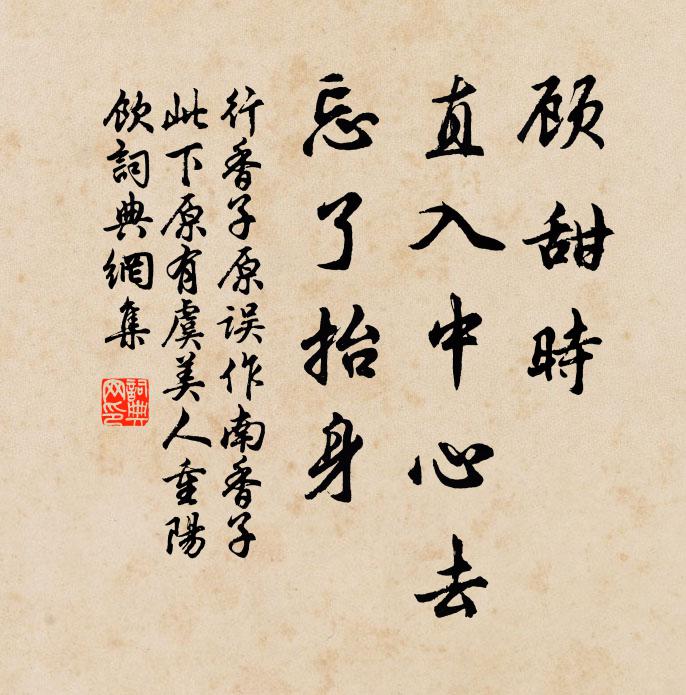 顾甜時
直入中心去
忘了抬身
行香子原误作南香子
此下原有虞美人重陽
飲詞典網集
詞典
网印